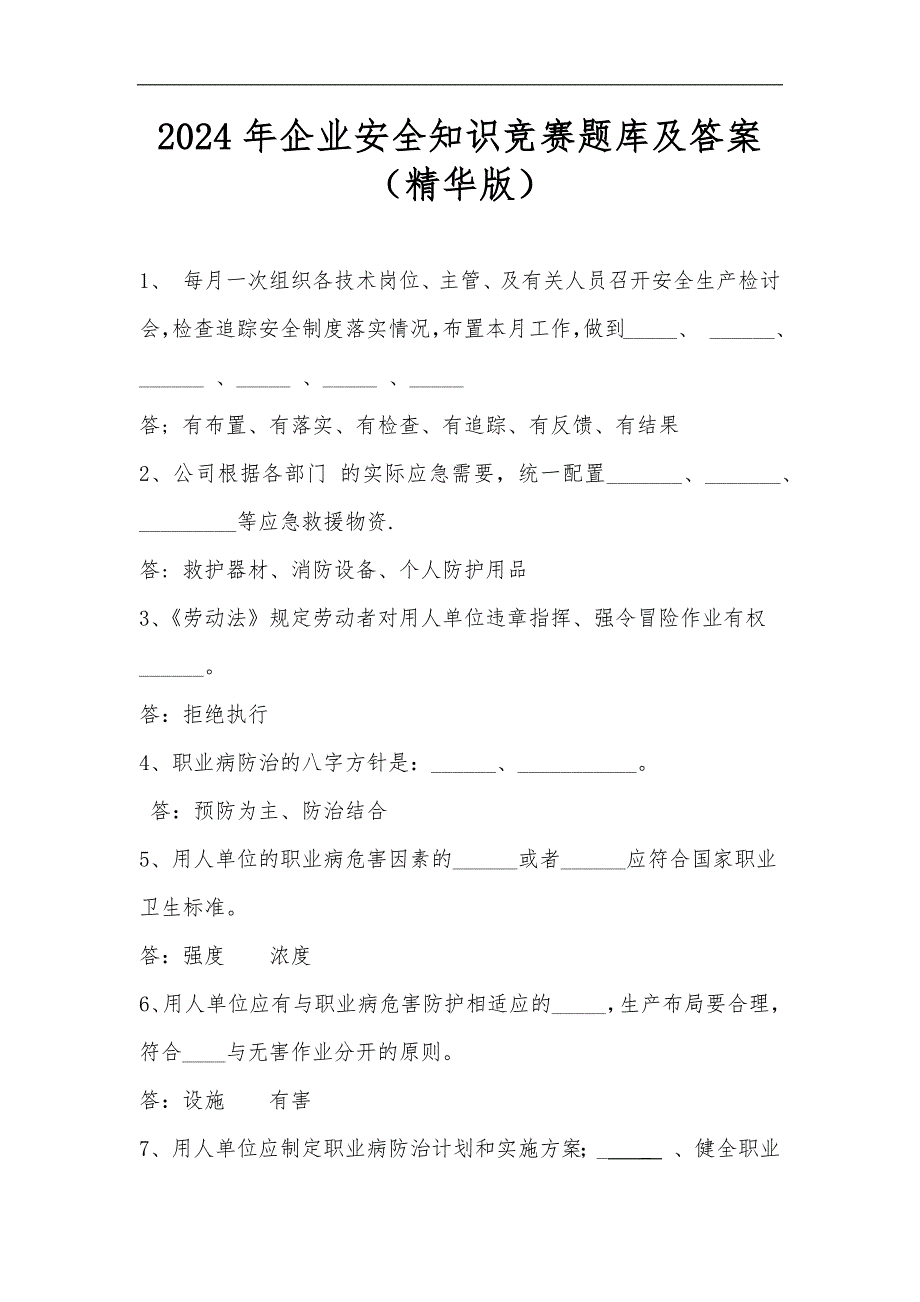 2024年企业安全知识竞赛题库及答案
（精华版）
1、 每月一次组织各技术岗位、主管、及有关人员召开安全生产检讨
会,检查追踪安全制度落实情况,布置本月工作,做到_____、 ______、
______ 、_____ 、_____ 、_____
答；有布置、有落实、有检查、有追踪、有反馈、有结果
2、公司根据各部门 的实际应急需要，统一配置_______、_______、
_________等应急救援物资.
答: 救护器材、消防设备、个人防护用品
3、《劳动法》规定劳动者对用人单位违章指挥、强令冒险作业有权
______。
答：拒绝执行
4、职业病防治的八字方针是：______、___________。
答：预防为主、防治结合
5、用人单位的职业病危害因素的______或者______应符合国家职业
卫生标准。
答：强度 浓度
6、用人单位应有与职业病危害防护相适应的_____,生产布局要合理,
符合____与无害作业分开的原则。
答：设施 有害
7、用人单位应制定职业病防治计划和实施方案；______ 、健全职业